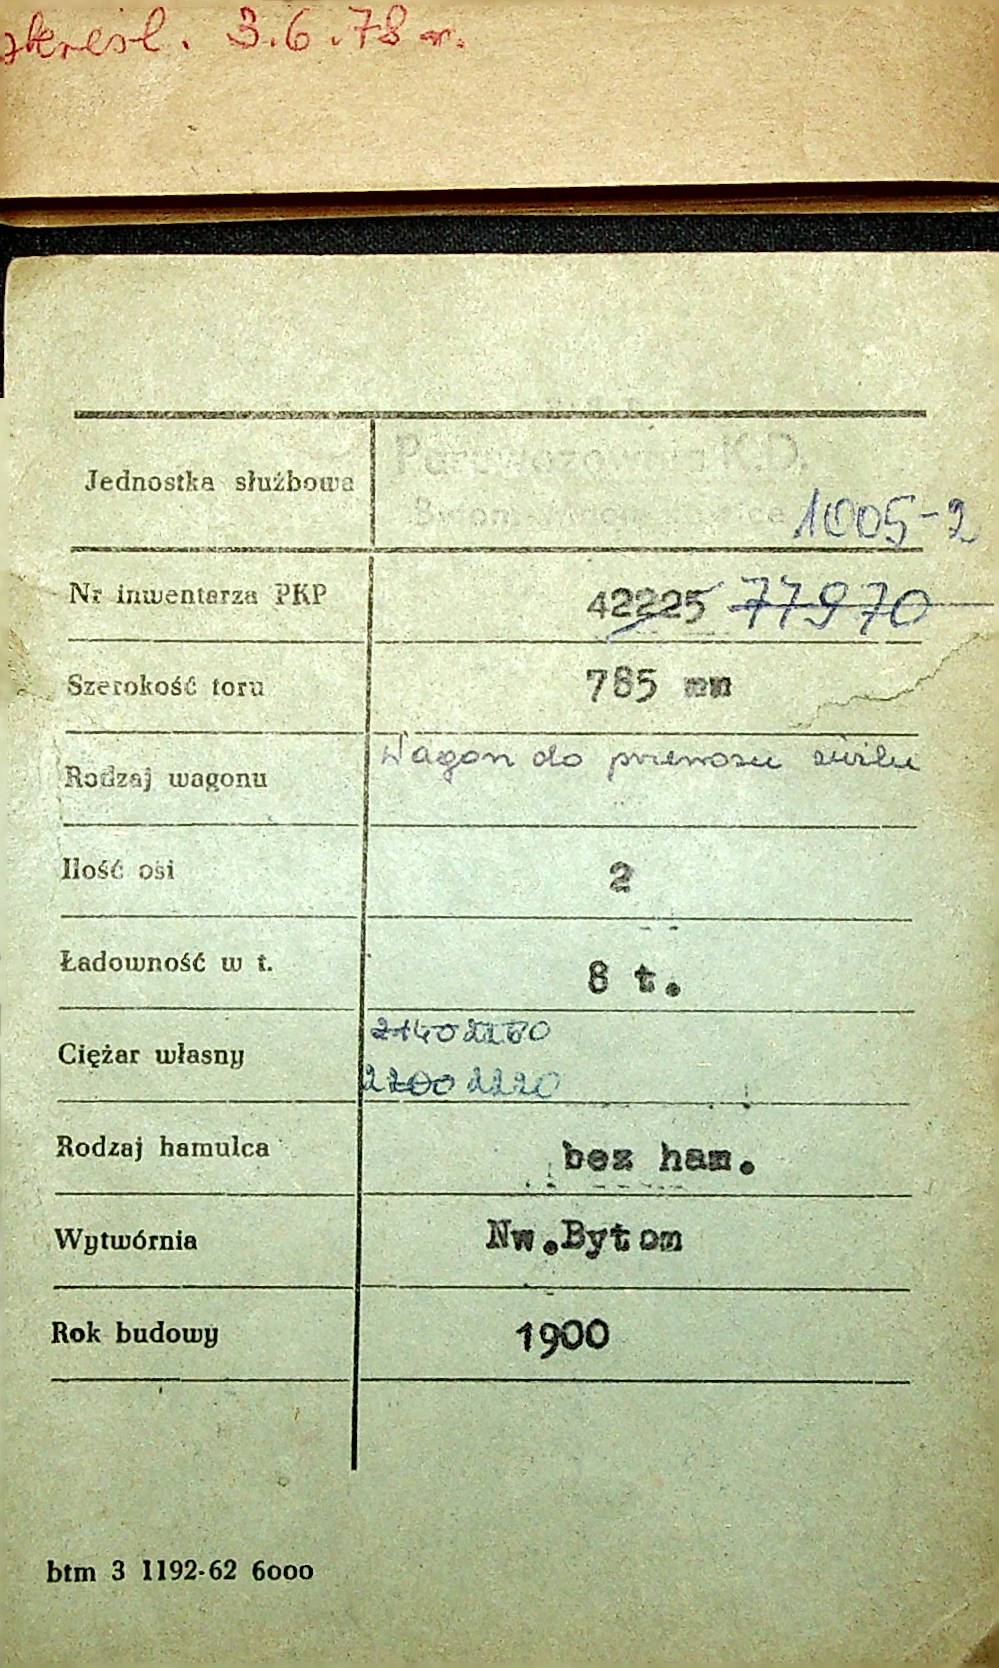 skreśl. 3.6.78 r.
Jednostka służbowa Parowozownia K.D.
1005-2
Nr inwentarza PKP 42225 77970
Szerokość toru 785 mm
Rodzaj wagonu Wagon do przewozu żużlu
Ilość osi 2
Ładowność w t. 8 t.
Ciężar własny 2140 2180
2200 2220
Rodzaj hamulca bez ham.
Wytwórnia Nw.Bytom
Rok budowy 1900
btm 3 1192-62 6000